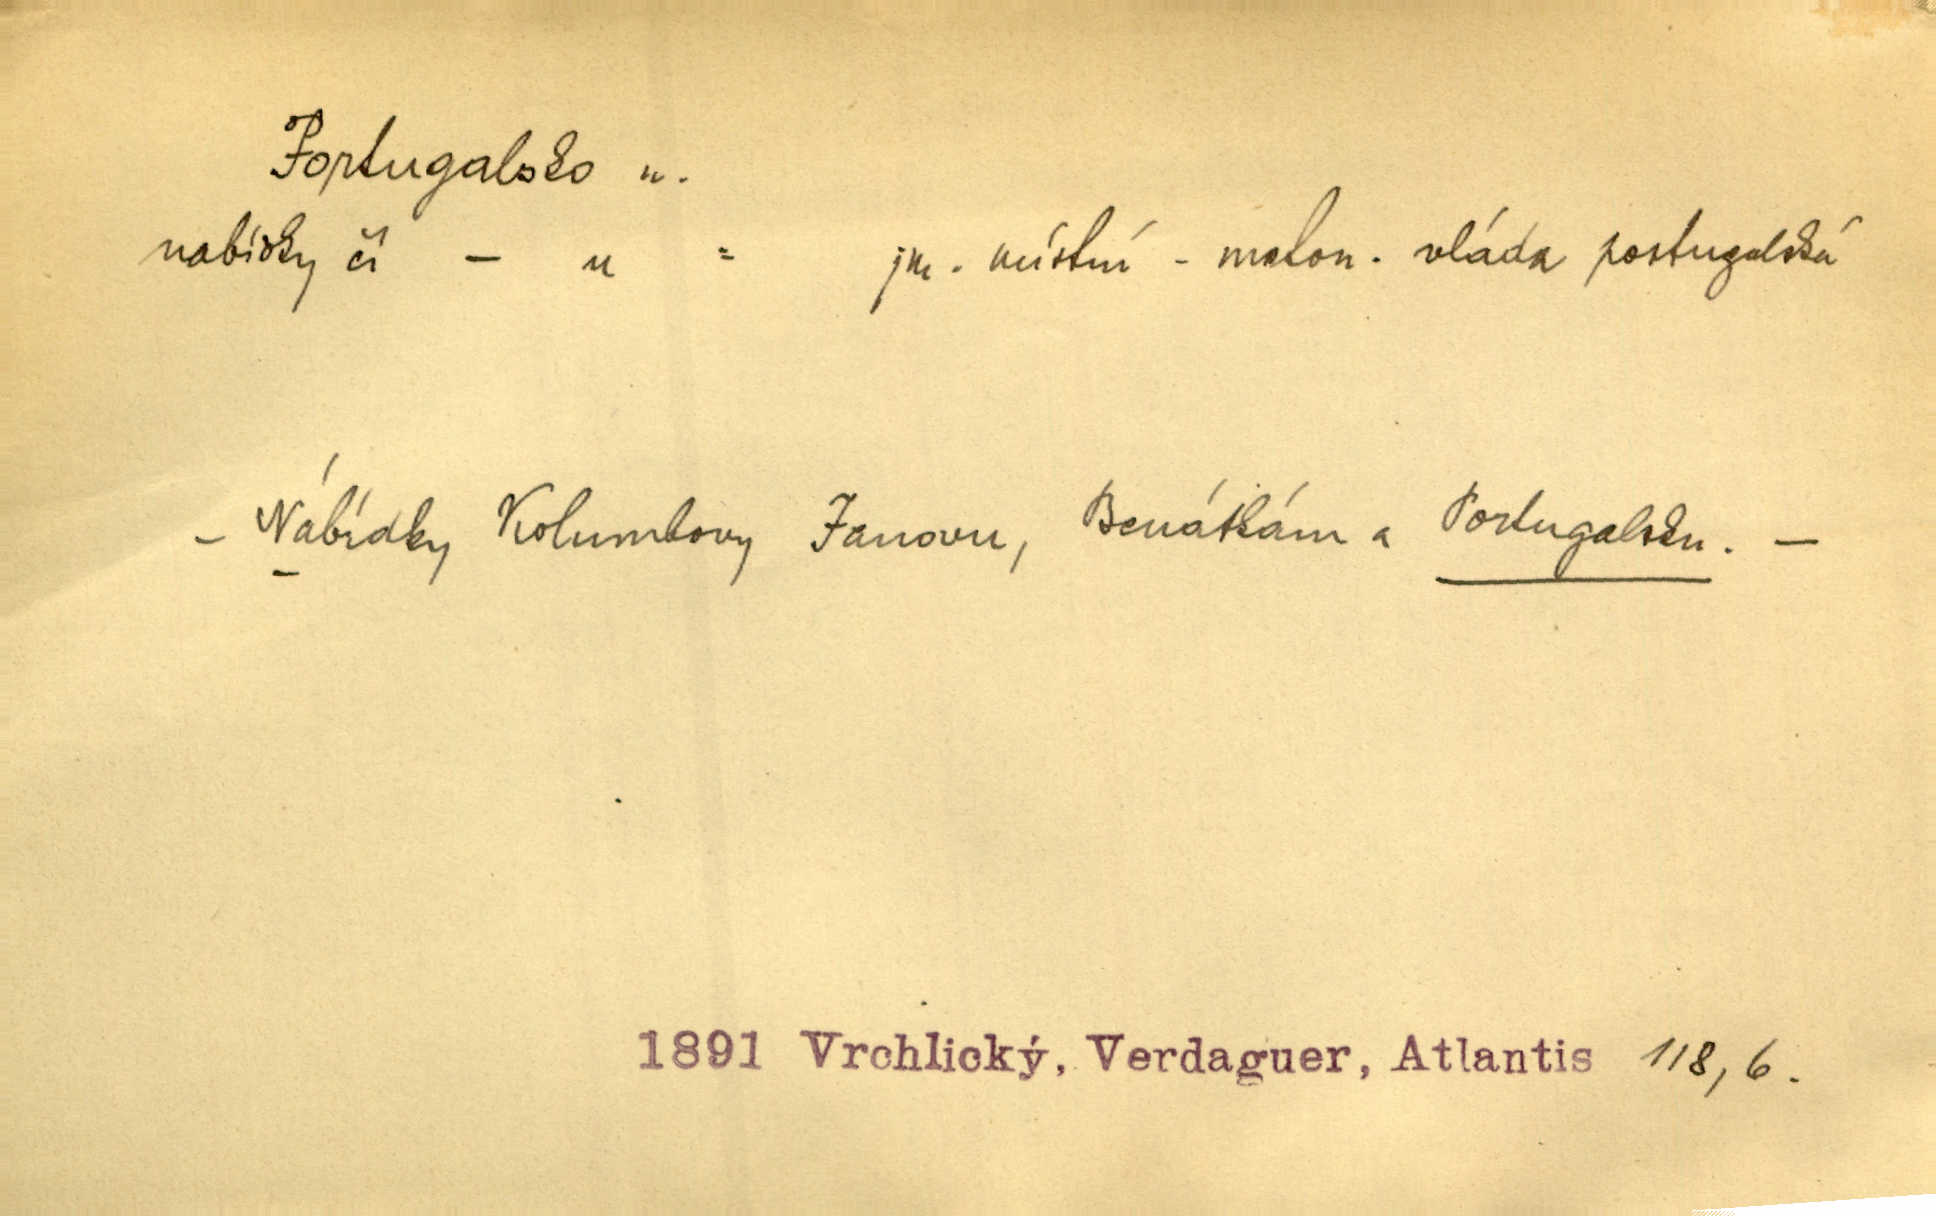 Portugalsko n.
nabídky čí – u = jm. místní - meton. vláda portugalská
– Nabídky Kolumbovy Janovu, Benátkám a Portugalsku. –
1891 Vrchlický, Verdaguer, Atlantis 118, 6.